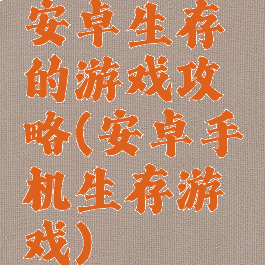 安卓生存
的游戏攻
略(安卓手
机生存游
戏)